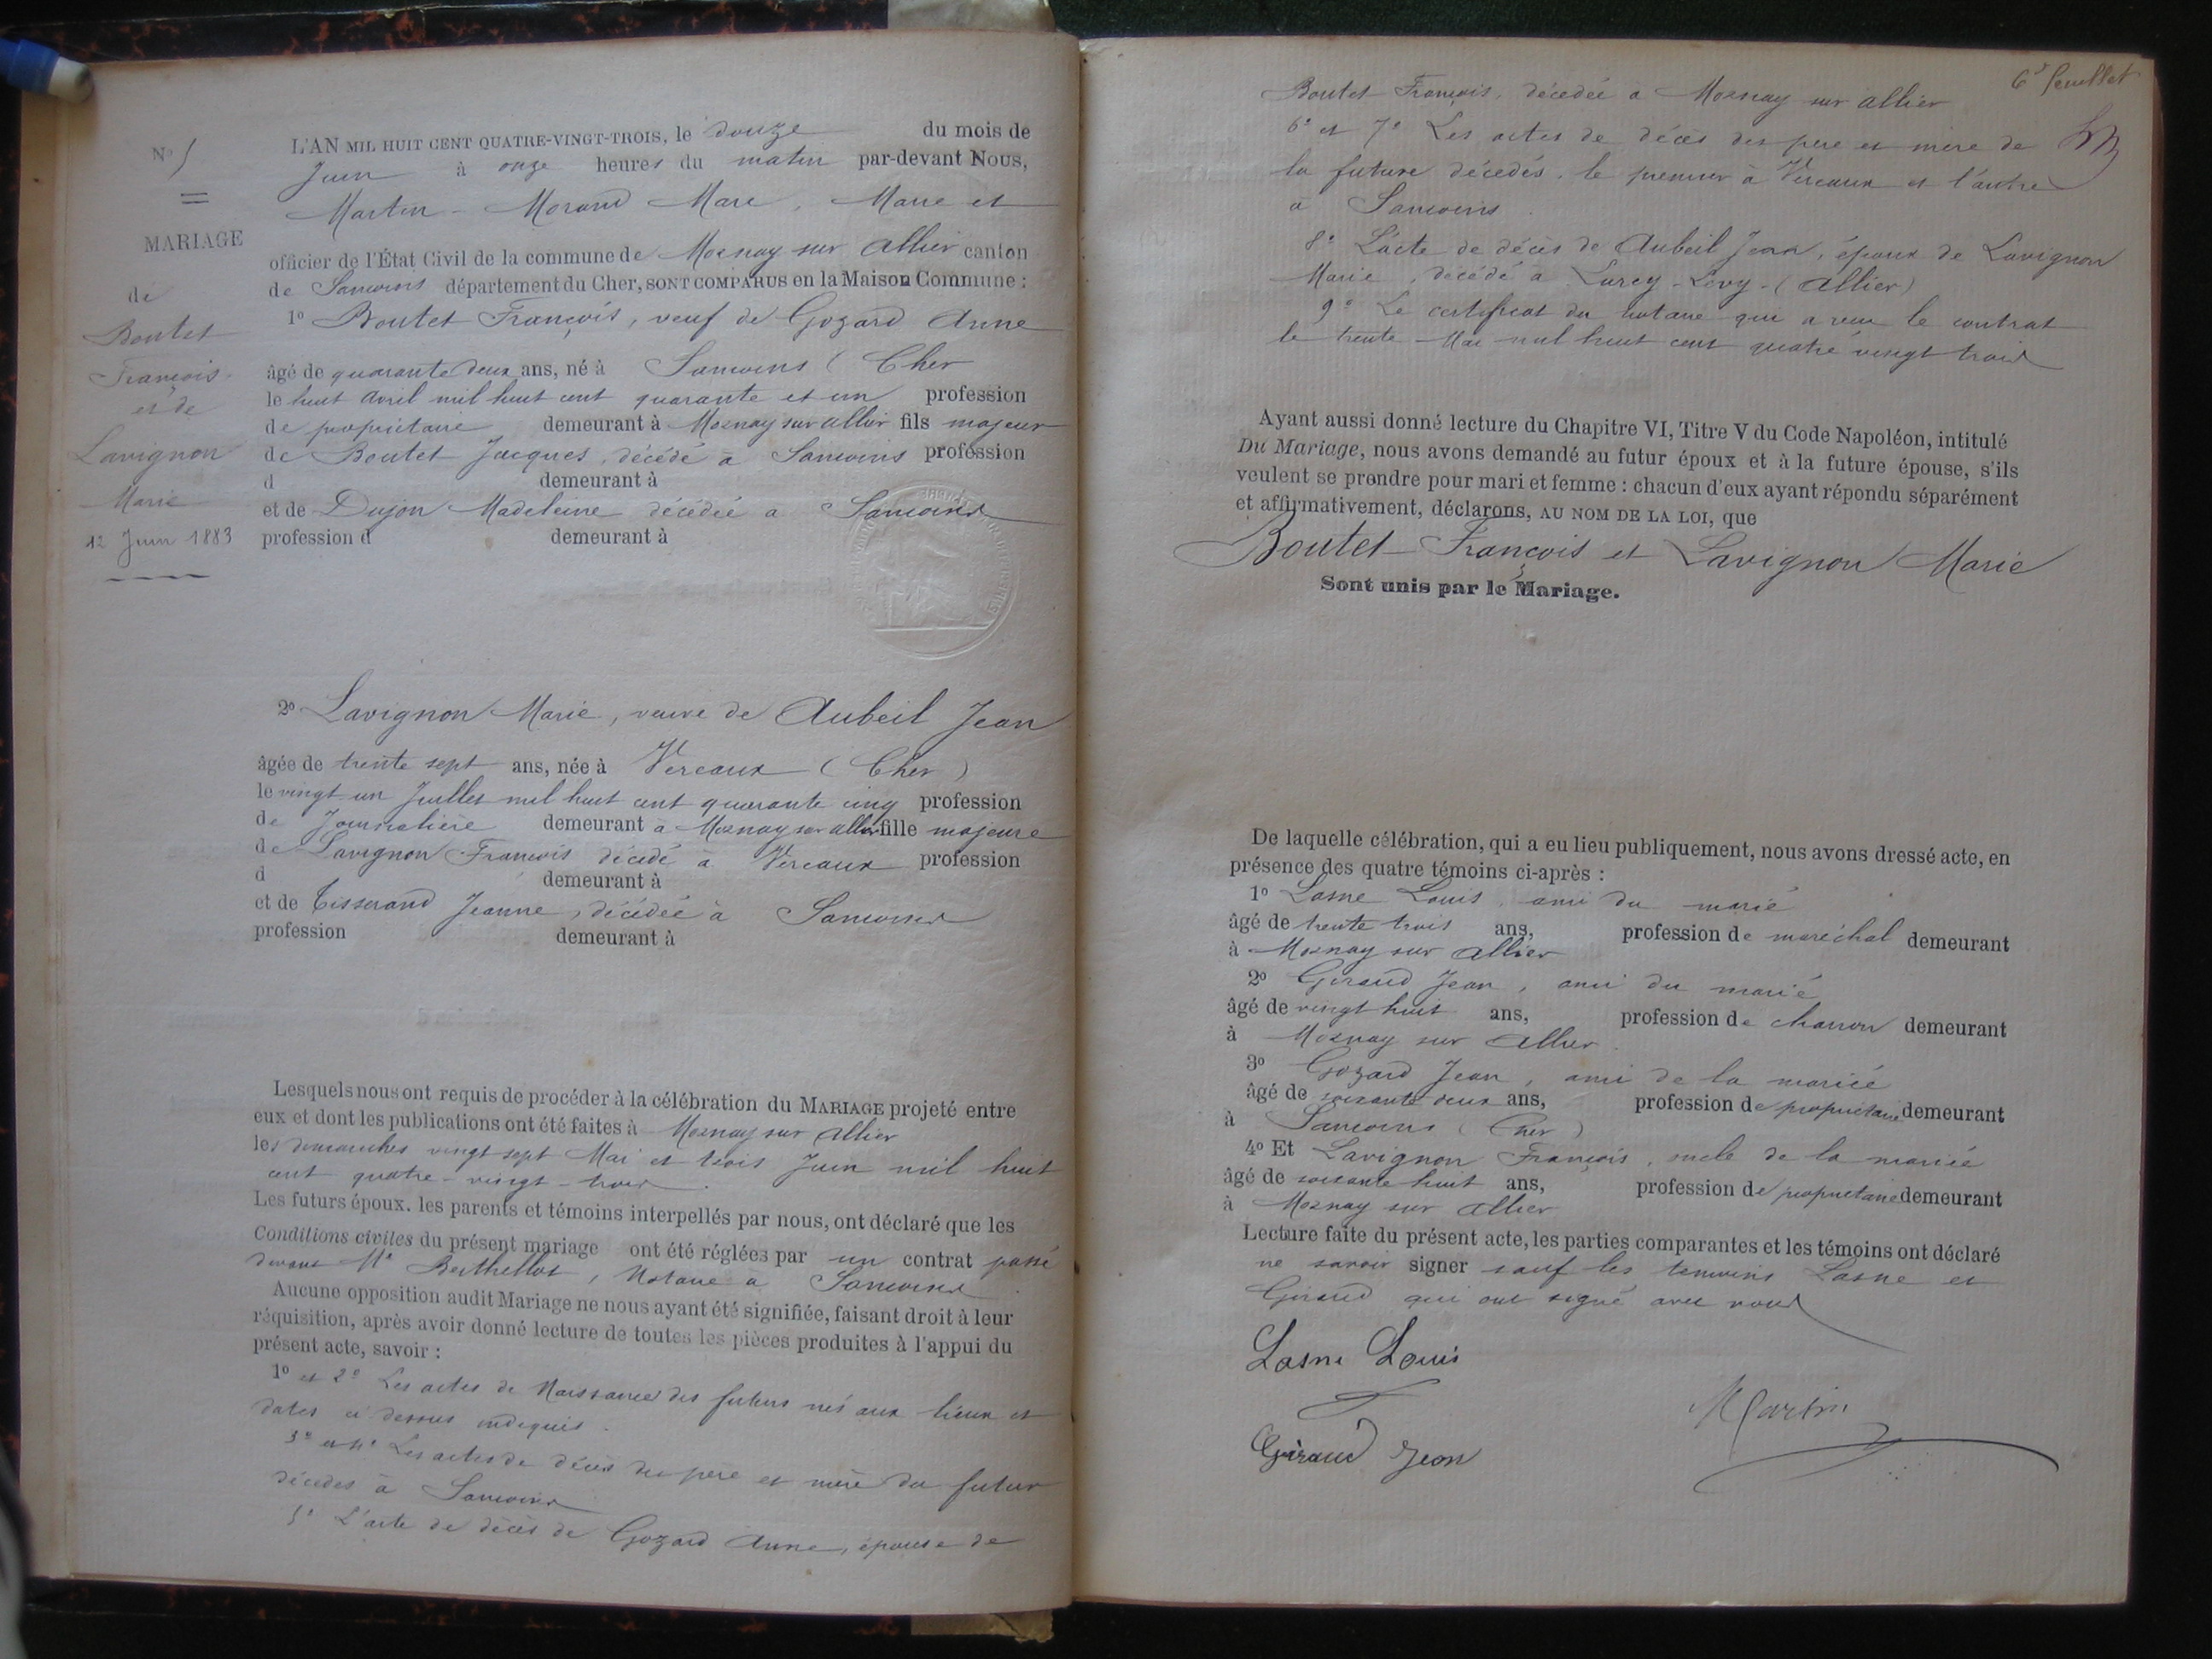 N° 5
MARIAGE
de
Boutet
François
et de
Lavignon
Marie
12 Juin 1883
L'AN MIL HUIT CENT QUATRE-VINGT-TROIS, le douze du mois de
Juin à onze heures du matin par-devant Nous,
Martin - Morand Marc, Maire et
officier de l'État Civil de la commune de Mornay sur Allier canton
de Sancoins département du Cher, SONT COMPARUS en la Maison Commune :
1° Boutet François, veuf de Gozard Anne
âgé de quarante deux ans, né à Sancoins (Cher
le huit avril mil huit cent quarante et un profession
de propriétaire demeurant à Mornay sur Allier fils majeur
de Boutet Jacques, décédé à Sancoins profession
d demeurant à
et de Dujon Madeleine décédée à Sancoins
profession d demeurant à
2° Lavignon Marie, veuve de Aubeil Jean
âgée de trente sept ans, née à Vereaux (Cher)
le vingt un Juillet mil huit cent quarante cinq profession
de Journalière demeurant à Mornay sur Allier fille majeure
de Lavignon François décédé à Vereaux profession
d demeurant à
et de Tisserand Jeanne, décédée à Sancoins
profession demeurant à
Lesquels nous ont requis de procéder à la célébration du MARIAGE projeté entre
eux et dont les publications ont été faites à Mornay sur Allier
les dimanches vingt sept Mai et trois Juin mil huit
cent quatre-vingt-trois.
Les futurs époux. les parents et témoins interpellés par nous, ont déclaré que les
Conditions civiles du présent mariage ont été réglées par un contrat passé
devant Me Berthellot, Notaire à Sancoins.
Aucune opposition audit Mariage ne nous ayant été signifiée, faisant droit à leur
réquisition, après avoir donné lecture de toutes les pièces produites à l'appui du
présent acte, savoir :
1° et 2° Les actes de Naissance des futurs nés aux lieux et
dates ci dessus indiqués.
3° et 4° Les actes de décès des père et mère du futur
décédés à Sancoins
5° L'acte de décès de Gozard Anne, épouse de
6e feuillet
Boutet François, décédée à Mornay sur Allier
6° et 7° Les actes de décès des père et mère de
la future décédés, le premier à Vereaux et l'autre
à Sancoins.
8° L'acte de décès de Aubeil Jean, époux de Lavignon
Marie, décédé à Lurcy-Lévy-(Allier)
9° Le certificat du notaire qui a reçu le contrat
le trente Mai mil huit cent quatre vingt trois
Ayant aussi donné lecture du Chapitre VI, Titre V du Code Napoléon, intitulé
Du Mariage, nous avons demandé au futur époux et à la future épouse, s'ils
veulent se prendre pour mari et femme : chacun d'eux ayant répondu séparément
et affirmativement, déclarons, AU NOM DE LA LOI, que
Boutet François et Lavignon Marie
Sont unis par le Mariage.
De laquelle célébration, qui a eu lieu publiquement, nous avons dressé acte, en
présence des quatre témoins ci-après :
1° Lasne Louis, ami du marié
âgé de trente trois ans, profession de maréchal demeurant
à Mornay sur Allier
2° Giraud Jean, ami du marié
âgé de vingt huit ans, profession de charron demeurant
à Mornay sur Allier.
3° Gozard Jean, ami de la mariée
âgé de soixante deux ans, profession de propriétaire demeurant
à Sancoins (Cher)
4° Et Lavignon François, oncle de la mariée
âgé de soixante huit ans, profession de propriétaire demeurant
à Mornay sur Allier
Lecture faite du présent acte, les parties comparantes et les témoins ont déclaré
ne savoir signer sauf les témoins Lasne et
Giraud qui ont signé avec nous
Lasne Louis
Martin
Giraud Jean